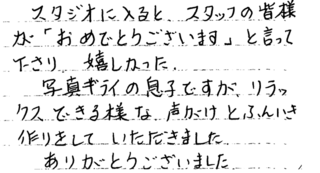 スタジオに入ると、スタッフの皆様
が「おめでとうございます」と言って
下さり、嬉しかった。
写真ギライの息子ですが、リラッ
クスできる様な、声がけとふんいき
作りをしていただきました
ありがとうございました